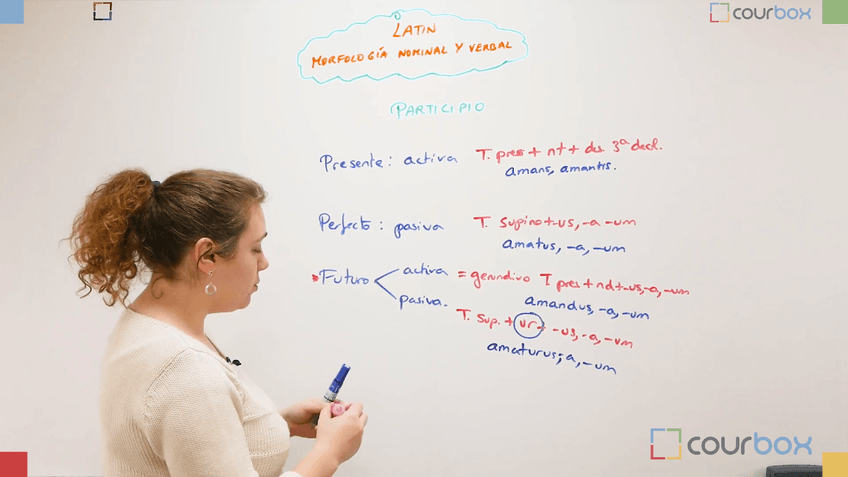 courbox
LATIN
MORFOLOGÍA NOMINAL Y VERBAL
PARTICIPIO
Presente: activa T. pres + nt + des. 3ª decl.
amans, amantis.
Perfecto: pasiva T. Supino + -us, -a -um
amatus, -a, -um
*Futuro activa = gerundivo T pres + nd + -us, -a, -um
amandus, -a, -um
pasiva. T. Sup. + ur + -us, -a, -um
amaturus, -a, -um
courbox